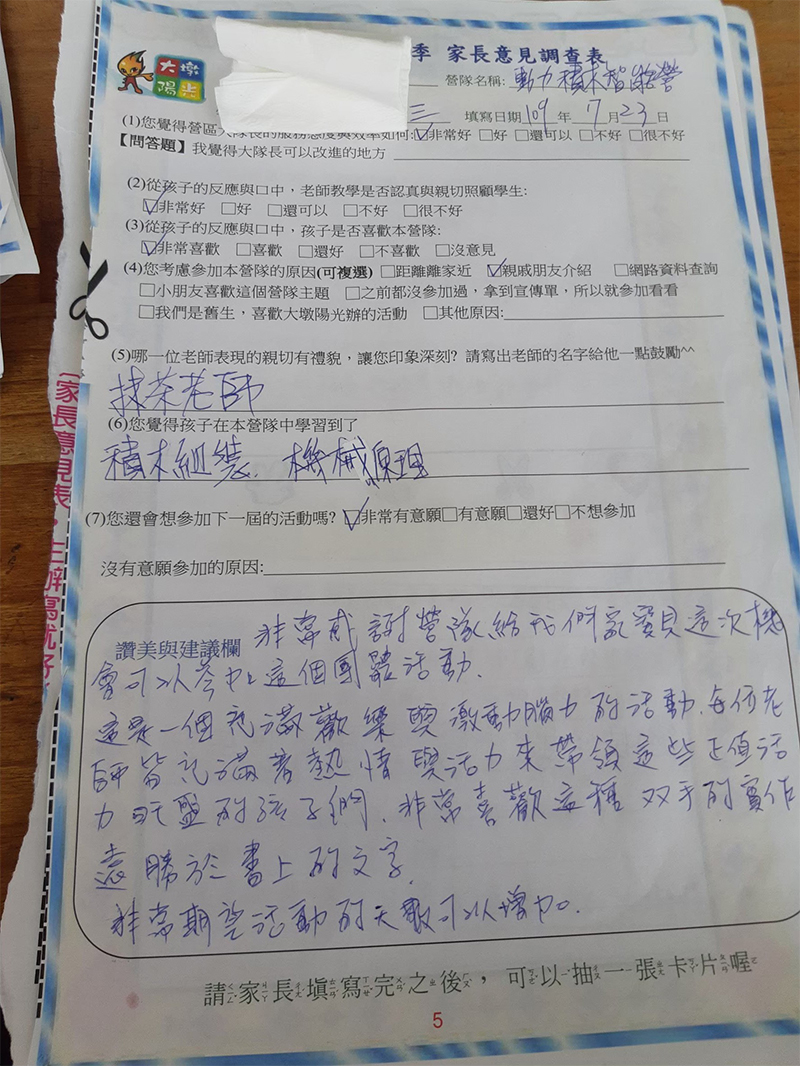 大墩
陽光
季 家長意見調查表
營隊名稱: 動力積木智能營
三 填寫日期109年7月23日
(1)您覺得營區大隊長的服務態度與效率如何:☑非常好 □好 □還可以 □不好 □很不好
【問答題】我覺得大隊長可以改進的地方
(2)從孩子的反應與口中，老師教學是否認真與親切照顧學生:
☑非常好 □好 □還可以 □不好 □很不好
(3)從孩子的反應與口中，孩子是否喜歡本營隊:
☑非常喜歡 □喜歡 □還好 □不喜歡 □沒意見
(4)您考慮參加本營隊的原因(可複選) □距離離家近 ☑親戚朋友介紹 □網路資料查詢
□小朋友喜歡這個營隊主題 □之前都沒參加過，拿到宣傳單，所以就參加看看
□我們是舊生，喜歡大墩陽光辦的活動 □其他原因:
(5)哪一位老師表現的親切有禮貌，讓您印象深刻? 請寫出老師的名字給他一點鼓勵^^
抹茶老師
(6)您覺得孩子在本營隊中學習到了
積木組裝、機械原理
(7)您還會想參加下一屆的活動嗎? ☑非常有意願□有意願□還好□不想參加
沒有意願參加的原因:
讚美與建議欄 非常感謝營隊給我們家寶貝這次機
會可以參加這個團體活動.
這是一個充滿歡樂與激動腦力的活動.每位老
師皆充滿著熱情與活力來帶領這些正值活
力旺盛的孩子們.非常喜歡這種双手的實作
遠勝於書上的文字.
非常期望活動的天數可以增加。
請家長填寫完之後，可以抽一張卡片喔
5
家長意見表